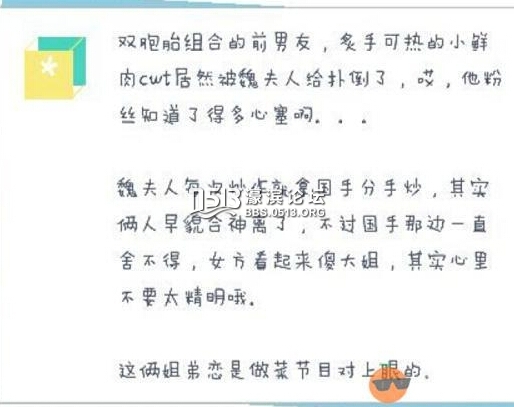 双胞胎组合的前男友，炙手可热的小鲜
肉cwt居然被魏夫人给扑倒了，哎，他粉
丝知道了得多心塞啊。。。
魏夫人每次炒作就拿国手分手炒，其实
0513濠滨论坛
BBS.0513.ORG
俩人早貌合神离了，不过国手那边一直
舍不得，女方看起来傻大姐，其实心里
不要太精明哦。
这俩姐弟恋是做菜节目对上眼的。